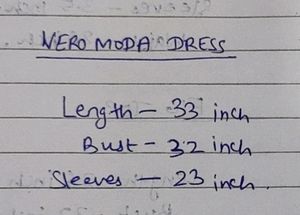 NERO MODA DRESS
Length – 33 inch
Bust – 32 inch
Sleeves – 23 inch.